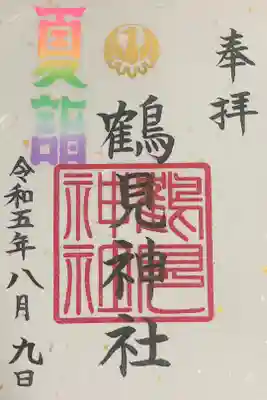 奉拝
鶴見神社
鶴見神社
夏詣
令和五年八月九日